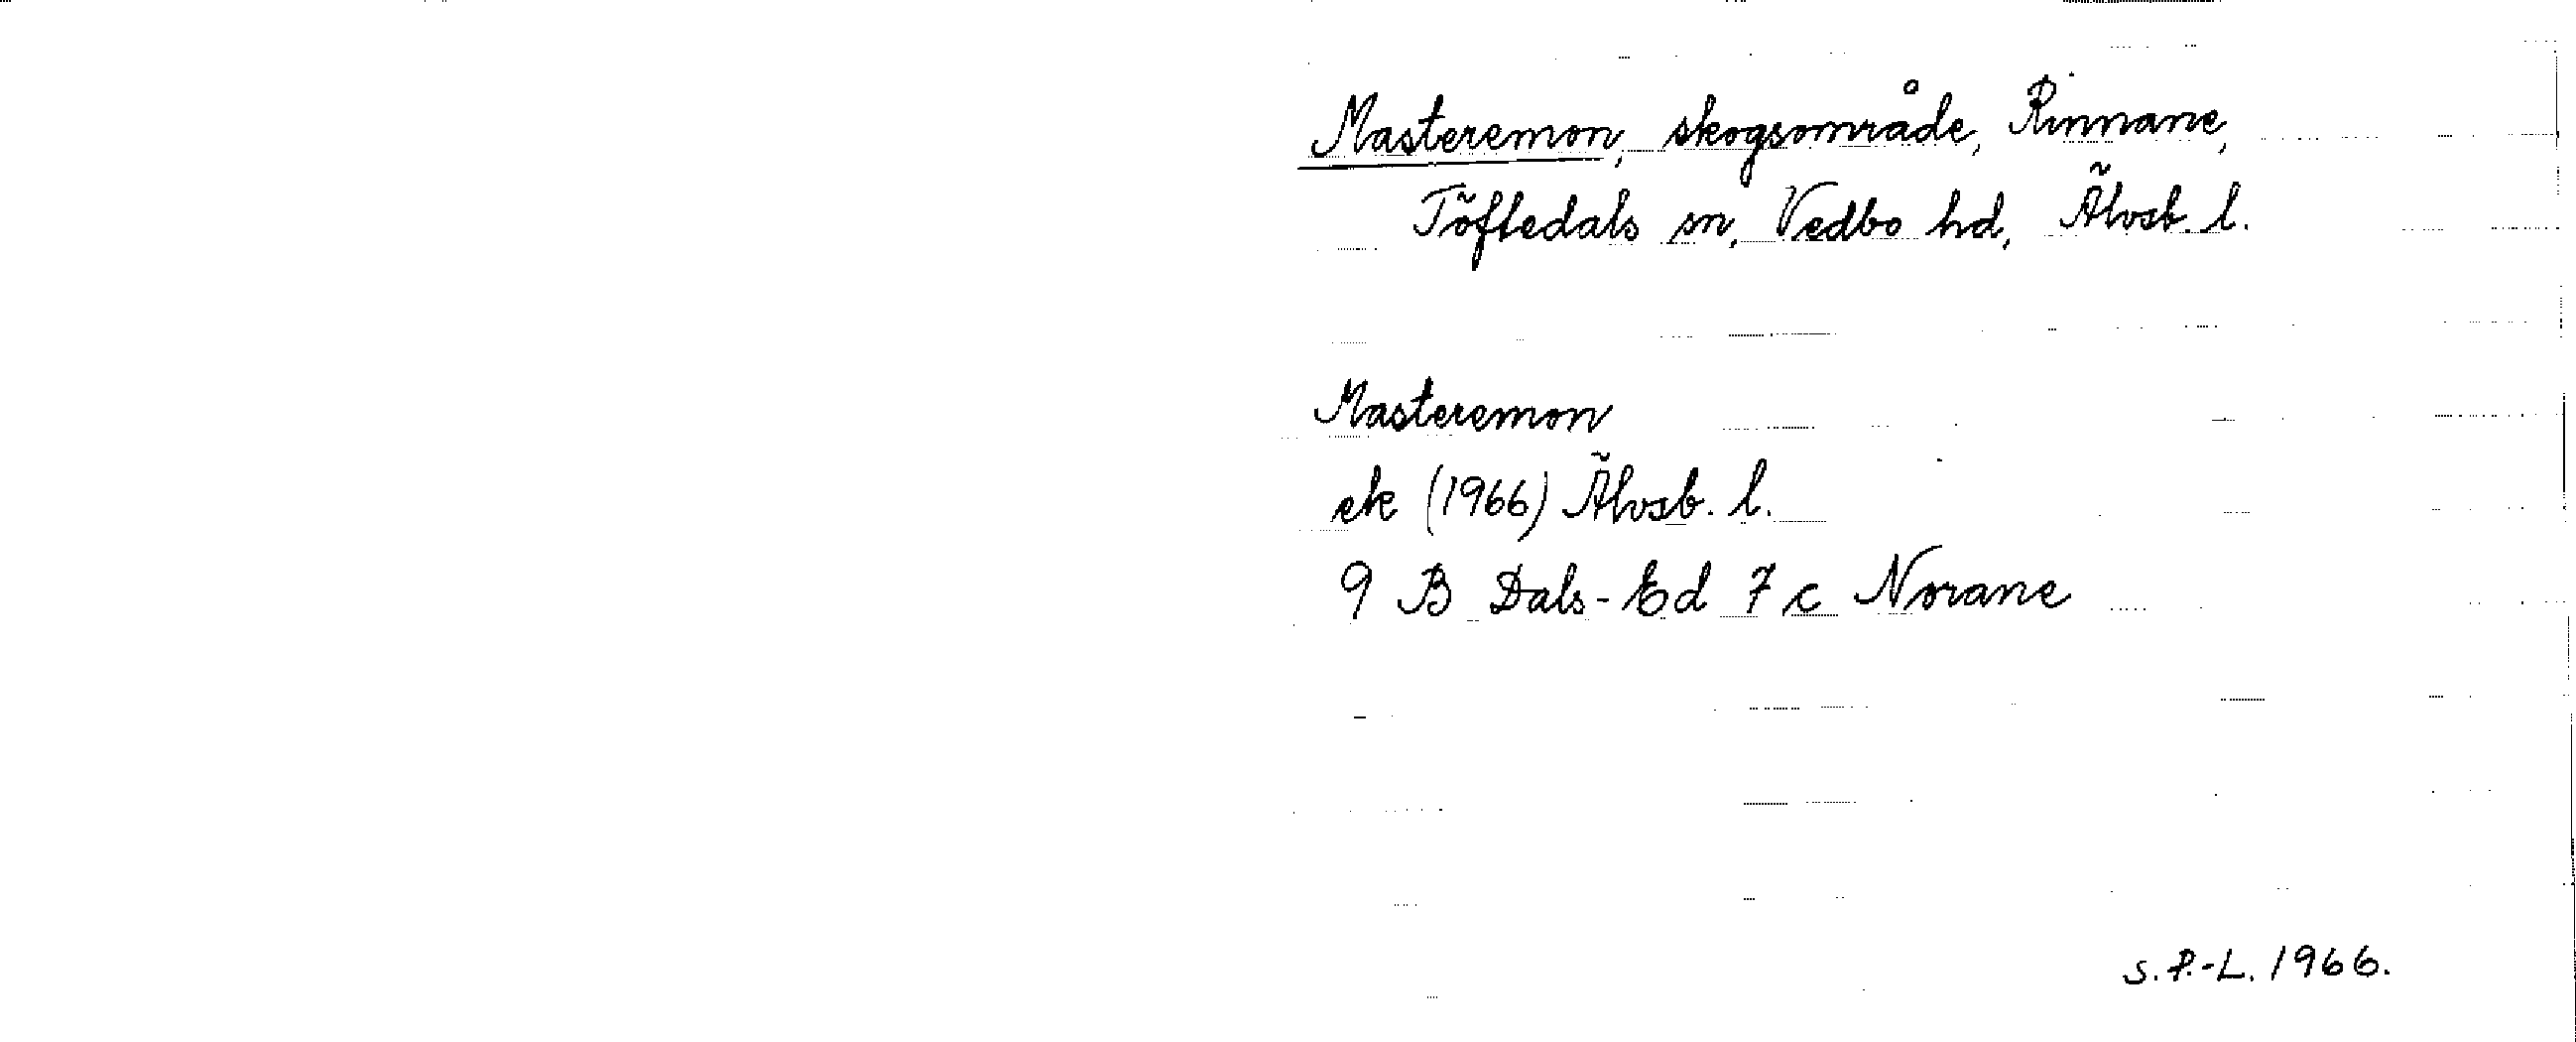 Masteremon, skogsområde, Rinnane,
Töftedals sn, Vedbo hd, Älvsb. l.
Masteremon
ek (1966) Älvsb. l.
9 B Dals-Ed 7 c Norane
S.P.-L. 1966.